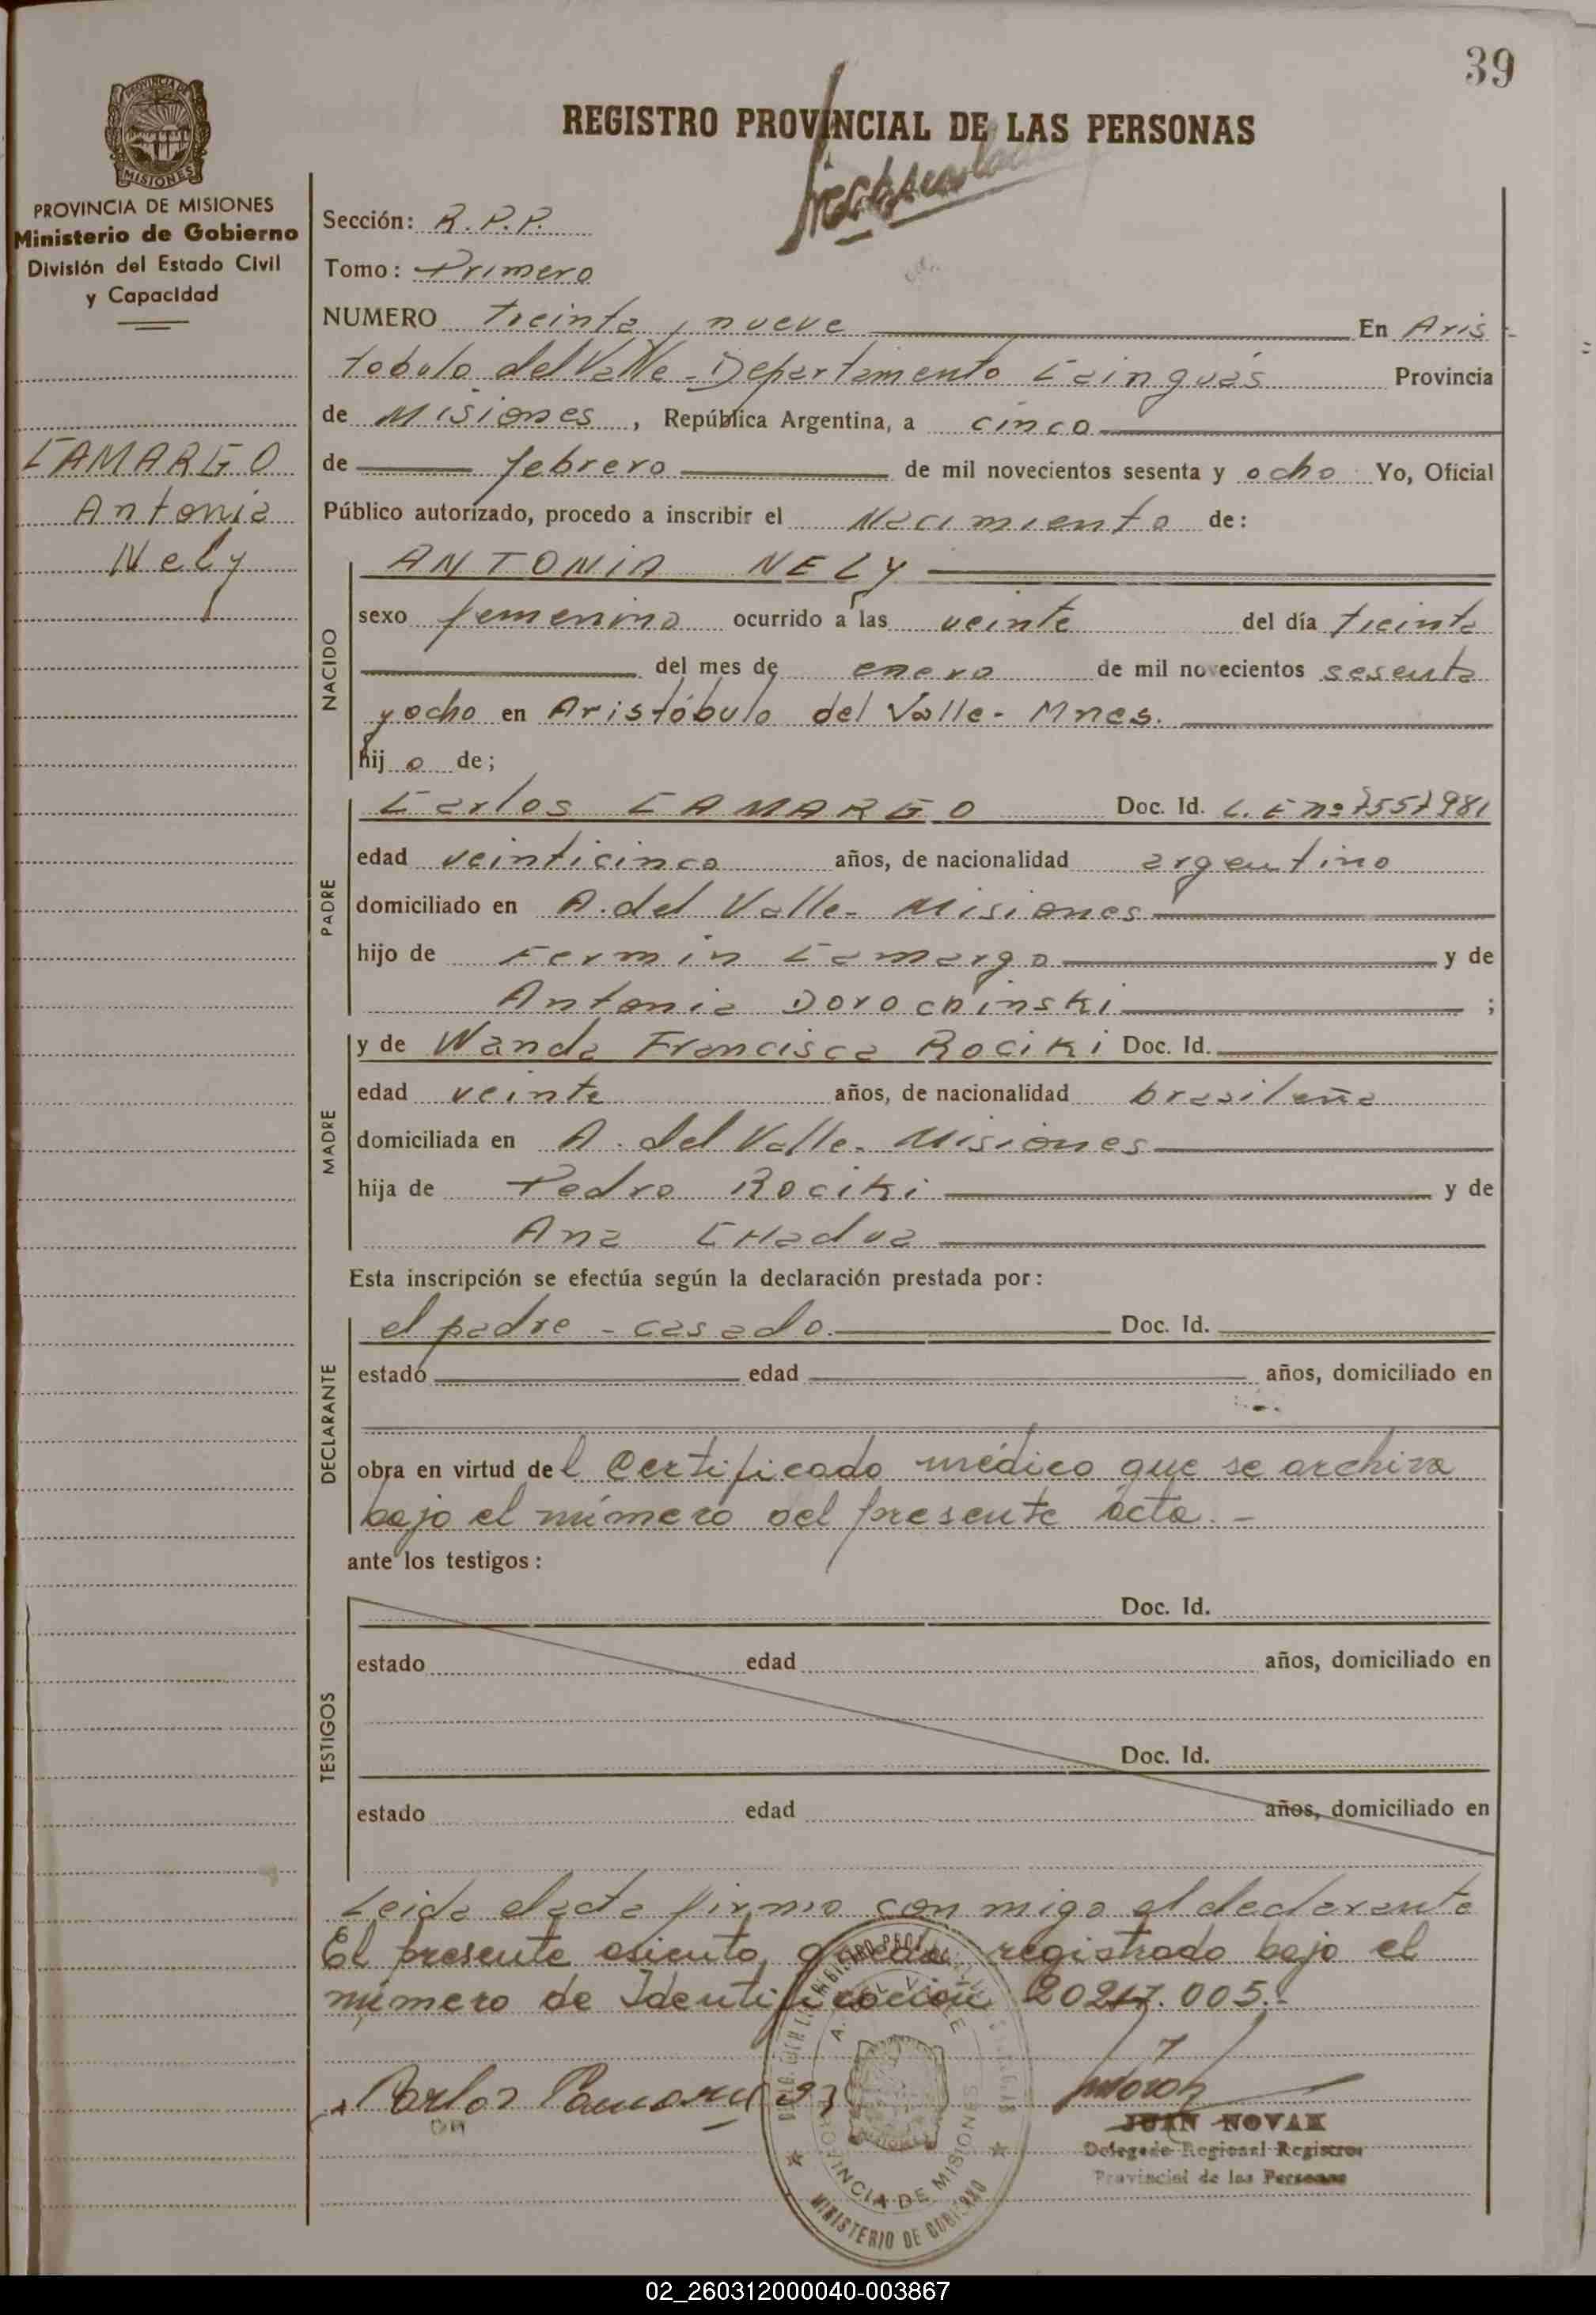 39
REGISTRO PROVINCIAL DE LAS PERSONAS
MISIONES
PROVINCIA DE MISIONES
Ministerio de Gobierno
División del Estado Civil
y Capacidad
CAMARGO
Antonia
Nely
Sección: R.P.P.
Tomo: Primero
NUMERO treinta y nueve En Aris
tobulo del Valle - Departamento Cainguás Provincia
de Misiones, República Argentina, a cinco
de febrero de mil novecientos sesenta y ocho Yo, Oficial
Público autorizado, procedo a inscribir el Nacimiento de:
NACIDO
ANTONIA NELY
sexo femenino ocurrido a las veinte del día treinta
del mes de enero de mil novecientos sesenta
y ocho en Aristóbulo del Valle - Mnes.
hijo de;
PADRE
Carlos CAMARGO Doc. Id. L. E nº 7557981
edad veinticinco años, de nacionalidad argentino
domiciliado en A. del Valle - Misiones
hijo de Fermin Camargo y de
Antonia Dorochinski ;
MADRE
y de Wanda Francisca Rociki Doc. Id.
edad veinte años, de nacionalidad brasileña
domiciliada en A. del Valle - Misiones
hija de Pedro Rociki y de
Ana CHadua
Esta inscripción se efectúa según la declaración prestada por:
DECLARANTE
el padre - casado. Doc. Id.
estado edad años, domiciliado en
obra en virtud del Certificado médico que se archiva
bajo el número del presente acta. -
ante los testigos:
TESTIGOS
Doc. Id.
estado edad años, domiciliado en
Doc. Id.
estado edad años, domiciliado en
Leida el acta firma con migo el declarante
El presente asiento queda registrado bajo el
número de Identificación 20217.005.-
7
Carlos Camargo
JUAN NOVAK
Delegado Regional Registro
Provincial de las Personas
A. DEL VALLE
PROVINCIA DE MISIONES
MINISTERIO DE GOBIERNO
02_260312000040-003867